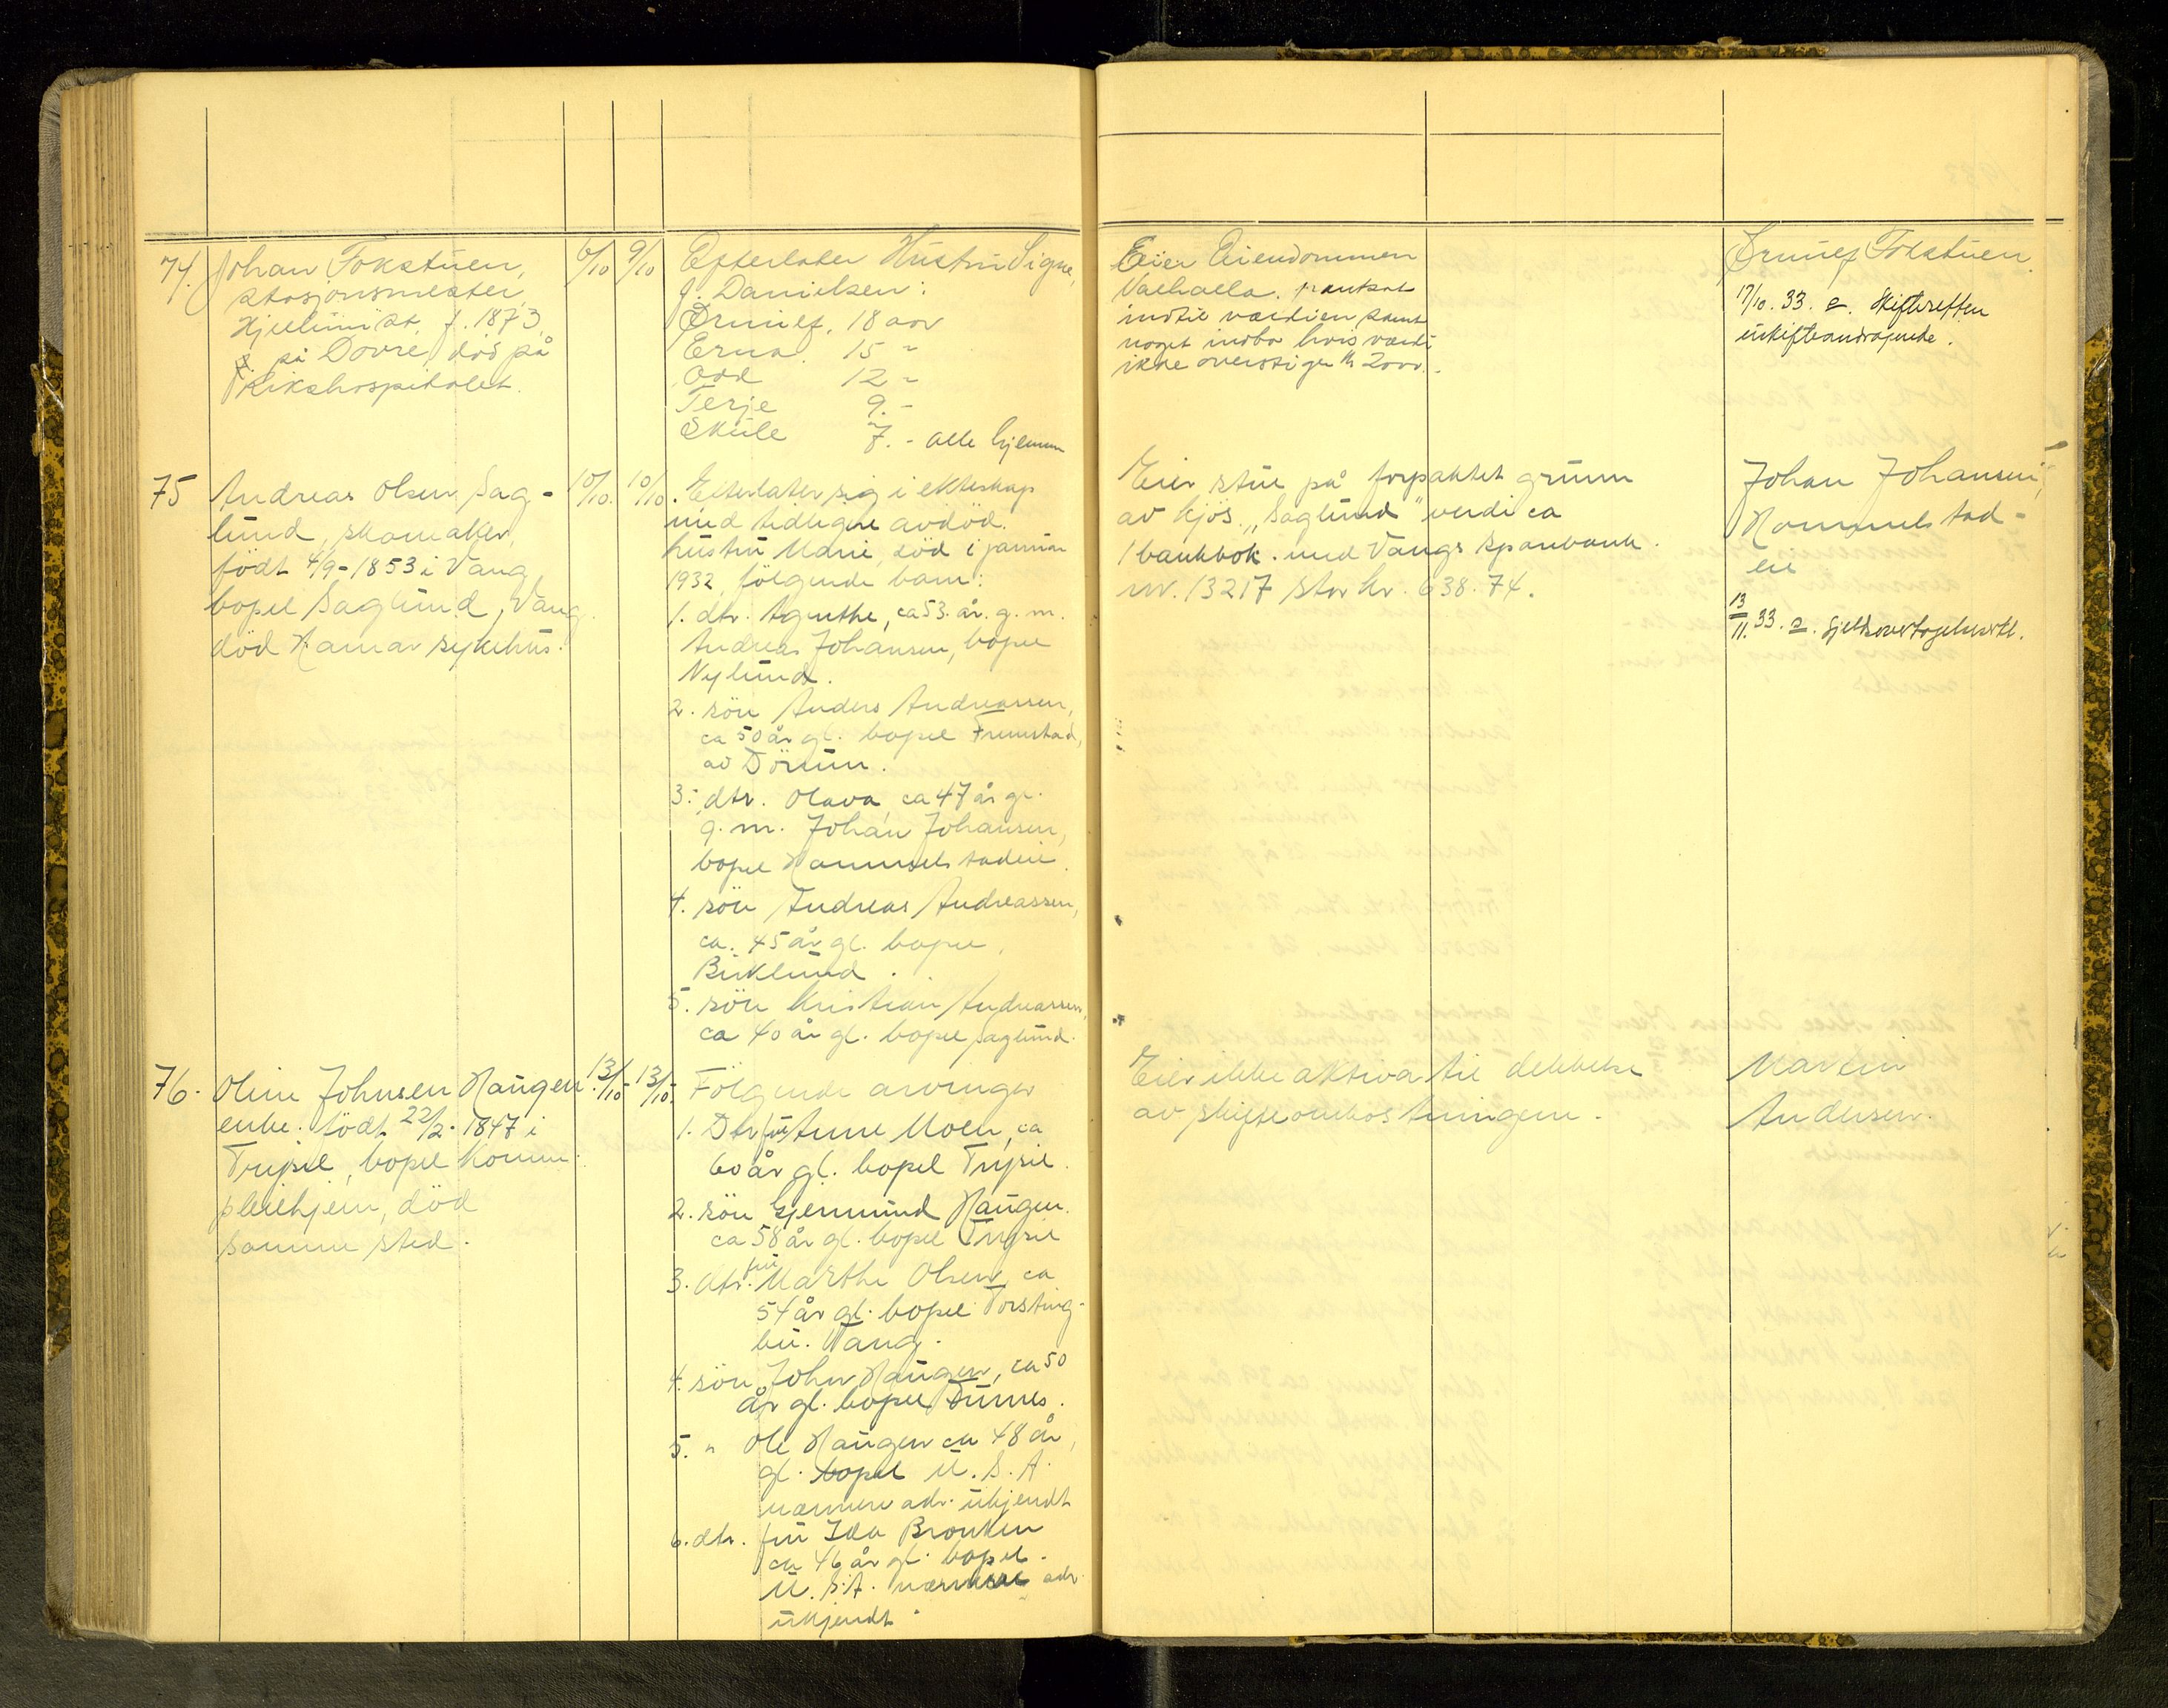 74. Johan Fokstuen,
stasjonsmester,
Hjellum st. f. 1873
på Dovre, död på
Rikshospitalet.
6/10 9/10
Efterlater Hustru Signe,
f. Danielsen:
Ørnulf, 18 aar
Erna 15 "
Odd 12 "
Terje 9 "
Skule 7 - alle hjemme
Eier Eiendommen
Valhalla. pantsat
indtil værdien samt
noget indbo hvis værdi
ikke overstiger kr 2000.
Ørnulf Fokstuen.
17/10. 33. s. Skifteretten
uskifteandragende.
75 Andreas Olsen Sag-
lund, skomaker,
födt 4/9-1853 i Vang
bopel Saglund, Vang.
död Hamar sykehus.
10/10. 10/10.
Efterlater sig i ekteskap
med tidligere avdöd.
hustru Marie, död i januar
1932, fölgende barn:
1. dtr. Agnthe, ca 53. år. g. m.
Andreas Johansen, bopel
Nylund.
2. sön Anders Andreassen,
ca 50 år gl. bopel
av
3. dtr. Olava, ca 47 år gl.
g. m. Johan Johansen,
bopel Hommelstadeie.
4. sön Andreas Andreassen,
ca. 45 år gl. bopel
5. sön Kristian Andreassen,
ca 40 år gl. bopel Saglund.
Eier stue på forpaktet grunn
av Kjös. "Saglund" verdi ca
1 bankbok. med Vangs Sparebank.
nr. 13217 stor kr. 638.74.
Johan Johansen,
Hommelstad-
eie
13/11. 33. s. Gjeldsovertagelsesatt.
76. Oline Johnsen Haugen
enke. födt 22/2-1847 i
Trysil, bopel Komm.
pleiehjem, död
samme sted.
13/10- 13/10-
Fölgende arvinger
1. Dtr. fru Anne Moen, ca
60 år gl. bopel Trysil.
2. sön Gjermund Haugen.
ca 58 år gl. bopel Trysil
3. dtr. fru Marthe Olsen, ca
54 år gl. bopel Torsting-
bu. Vang.
4. sön John Haugen, ca 50
år gl. bopel Furnes.
5. " Ole Haugen ca 48 år,
gl. bopel U. S. A.
nærmere adr. ukjendt
6. dtr. fru Ida Bronken
ca 46 år gl. bopel.
U. S. A. nærmere adr.
ukjendt.
Eier ikke aktiva til dekkelse
av skifteomkostningene.
Martin
Andersen.